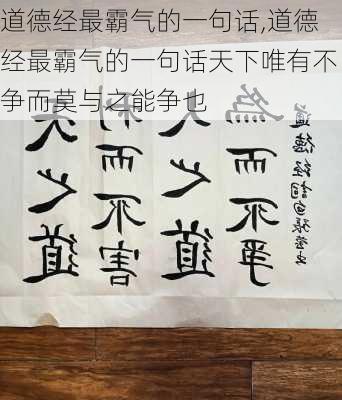 道德经最霸气的一句话,道德
经最霸气的一句话天下唯有不
争而莫与之能争也
天之道
利而不害
人之道
為而不爭
道德经